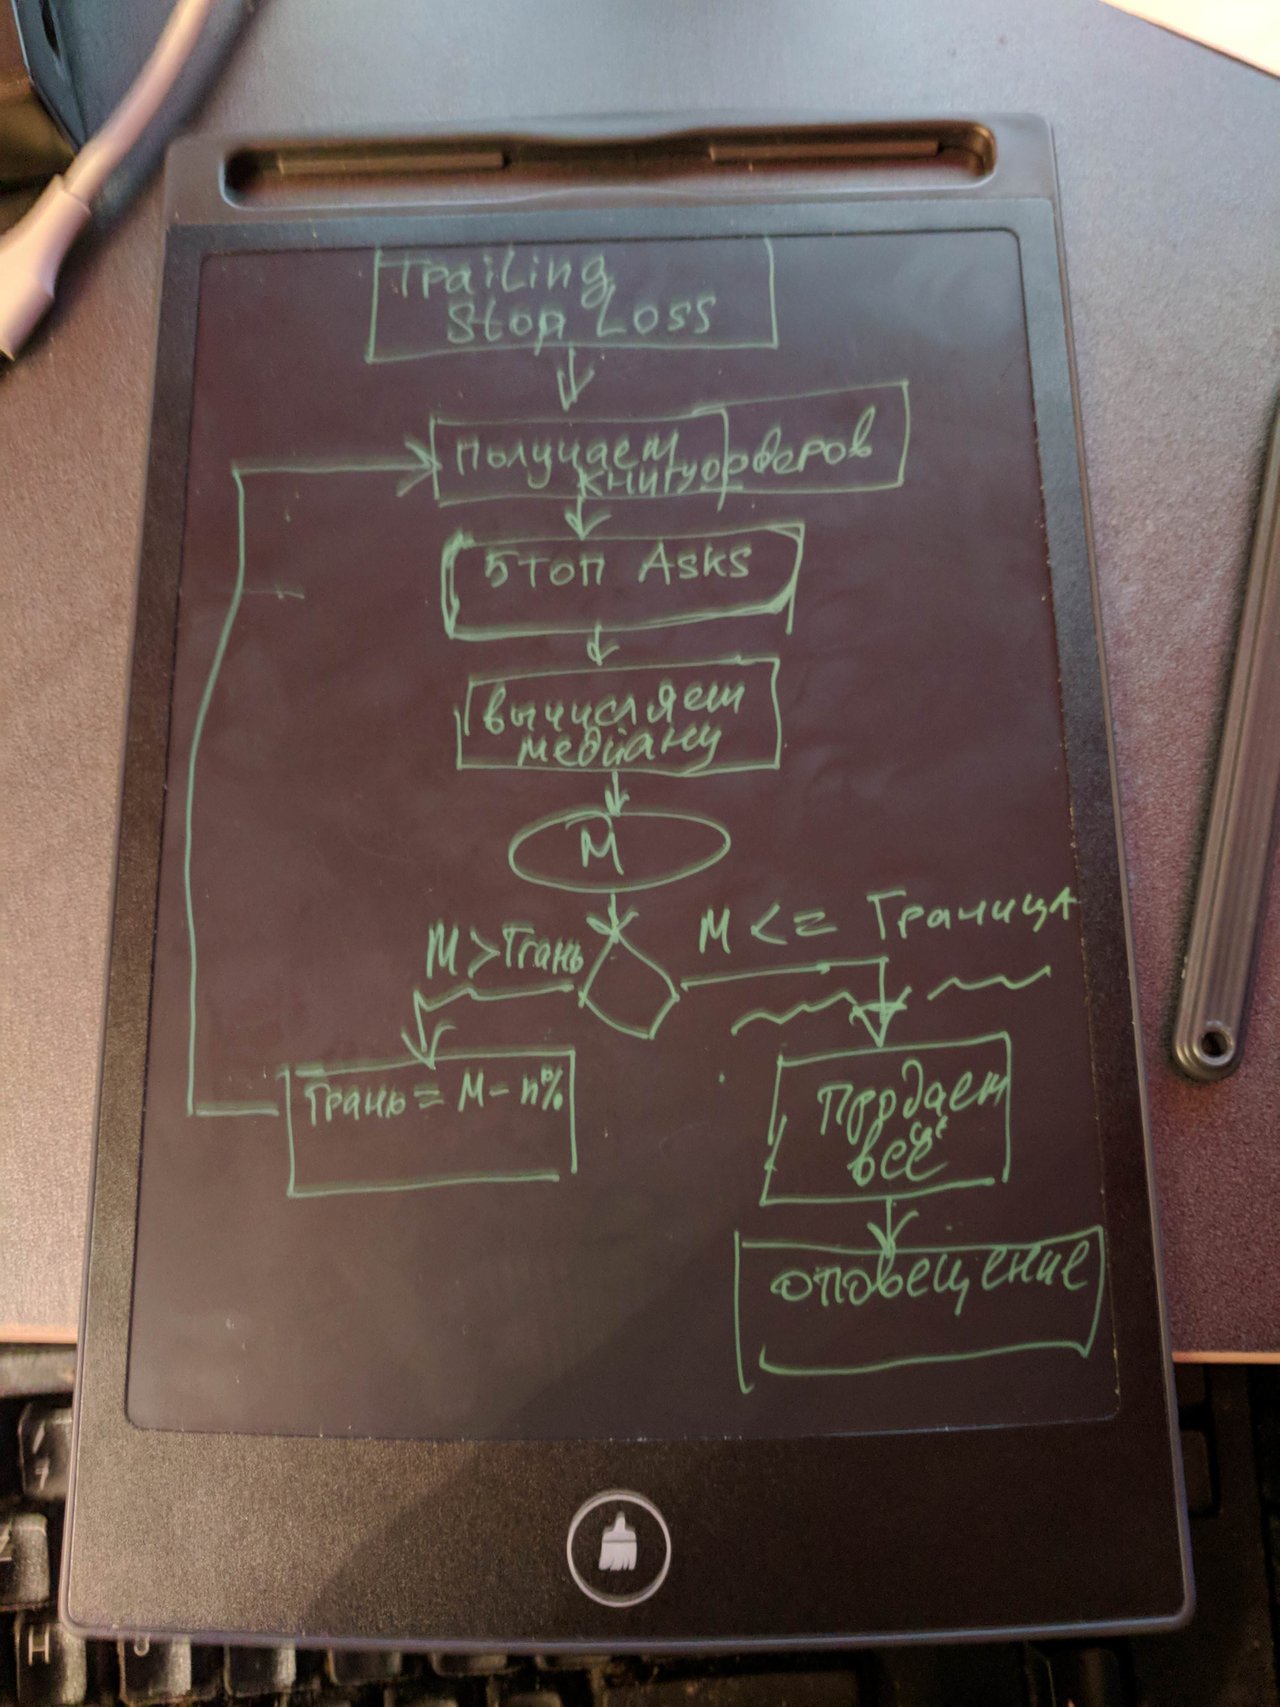 Trailing
Stop Loss
Получаем
книгу ордеров
5 топ Asks
вычисляем
медиану
M
M > Грань
M <= Граница
Грань = M - n%
Продаем
всё
оповещение
H